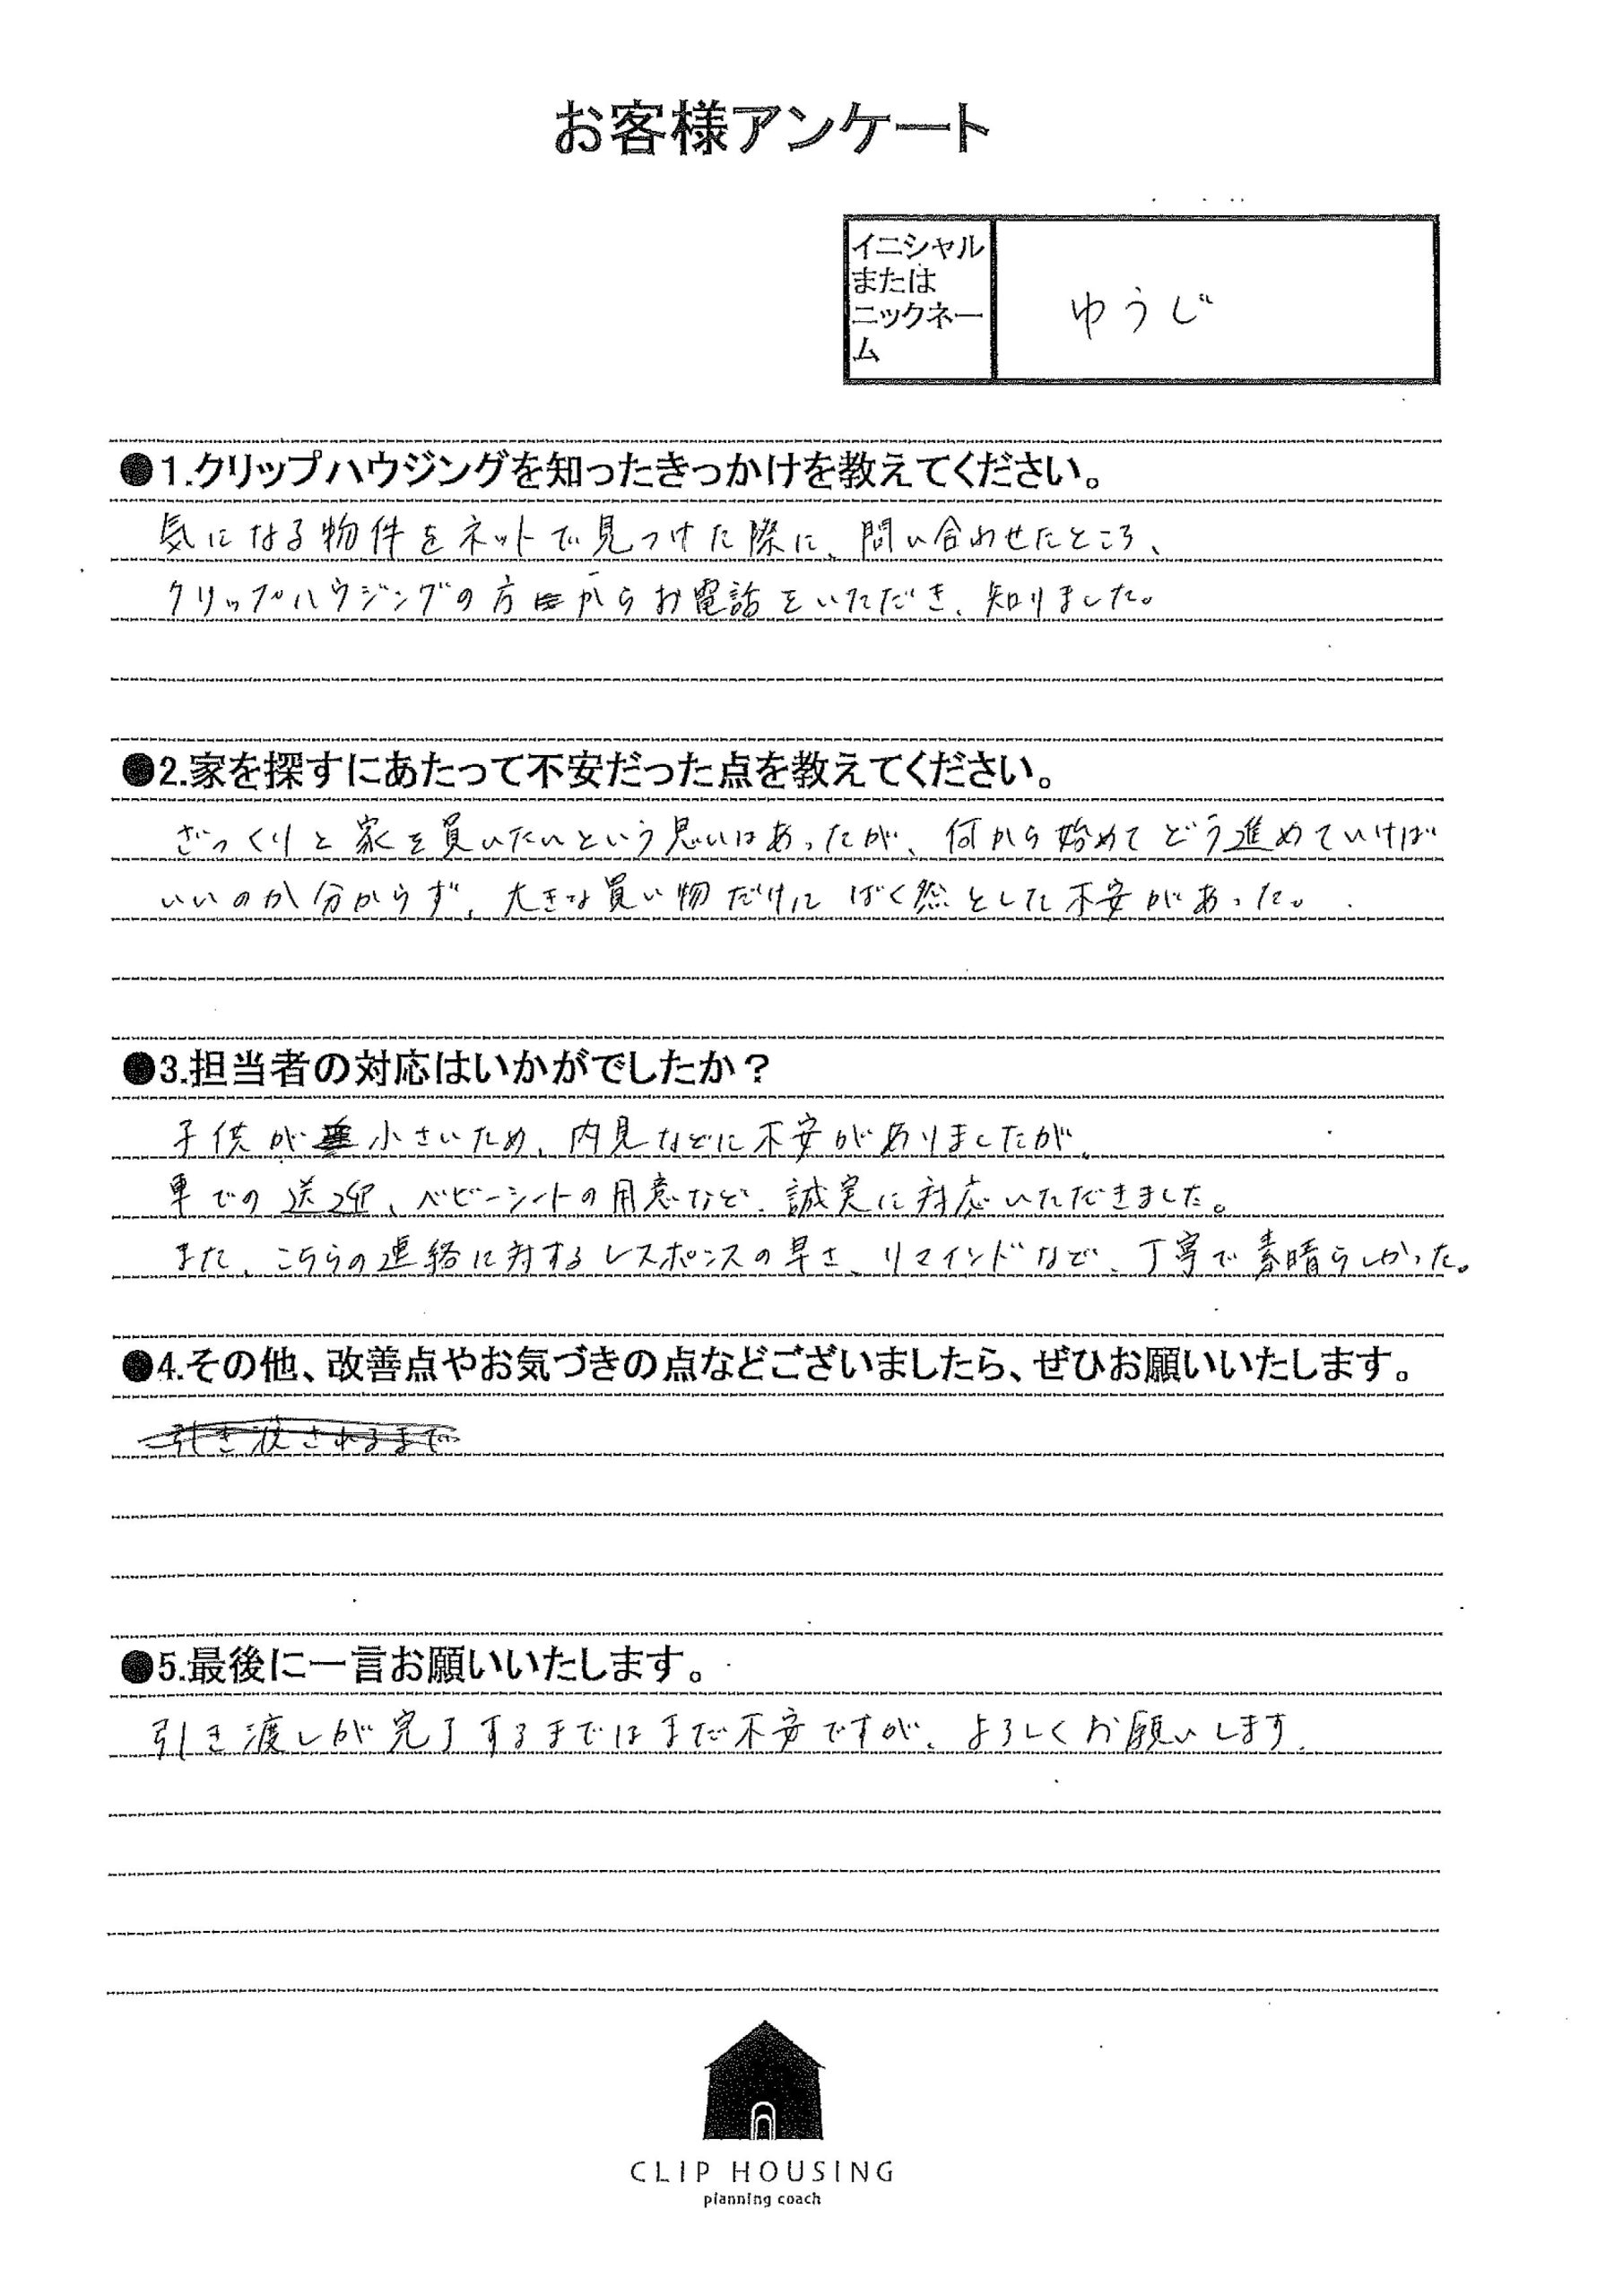 お客様アンケート
イニシャル
または
ニックネー
ム
ゆうじ
●1.クリップハウジングを知ったきっかけを教えてください。
気になる物件をネットで見つけた際に、問い合わせたところ、
クリップハウジングの方からお電話をいただき、知りました。
●2.家を探すにあたって不安だった点を教えてください。
ざっくりと家を買いたいという思いはあったが、何から始めてどう進めていけば
いいのか分からず、大きな買い物だけにばく然とした不安があった。
●3.担当者の対応はいかがでしたか？
子供が小さいため、内見などに不安がありましたが、
車での送迎、ベビーシートの用意など、誠実に対応いただきました。
また、こちらの連絡に対するレスポンスの早さ、リマインドなど、丁寧で素晴らしかった。
●4.その他、改善点やお気づきの点などございましたら、ぜひお願いいたします。
引き渡されるまで
●5.最後に一言お願いいたします。
引き渡しが完了するまではまだ不安ですが、よろしくお願いします。
CLIP HOUSING
planning coach